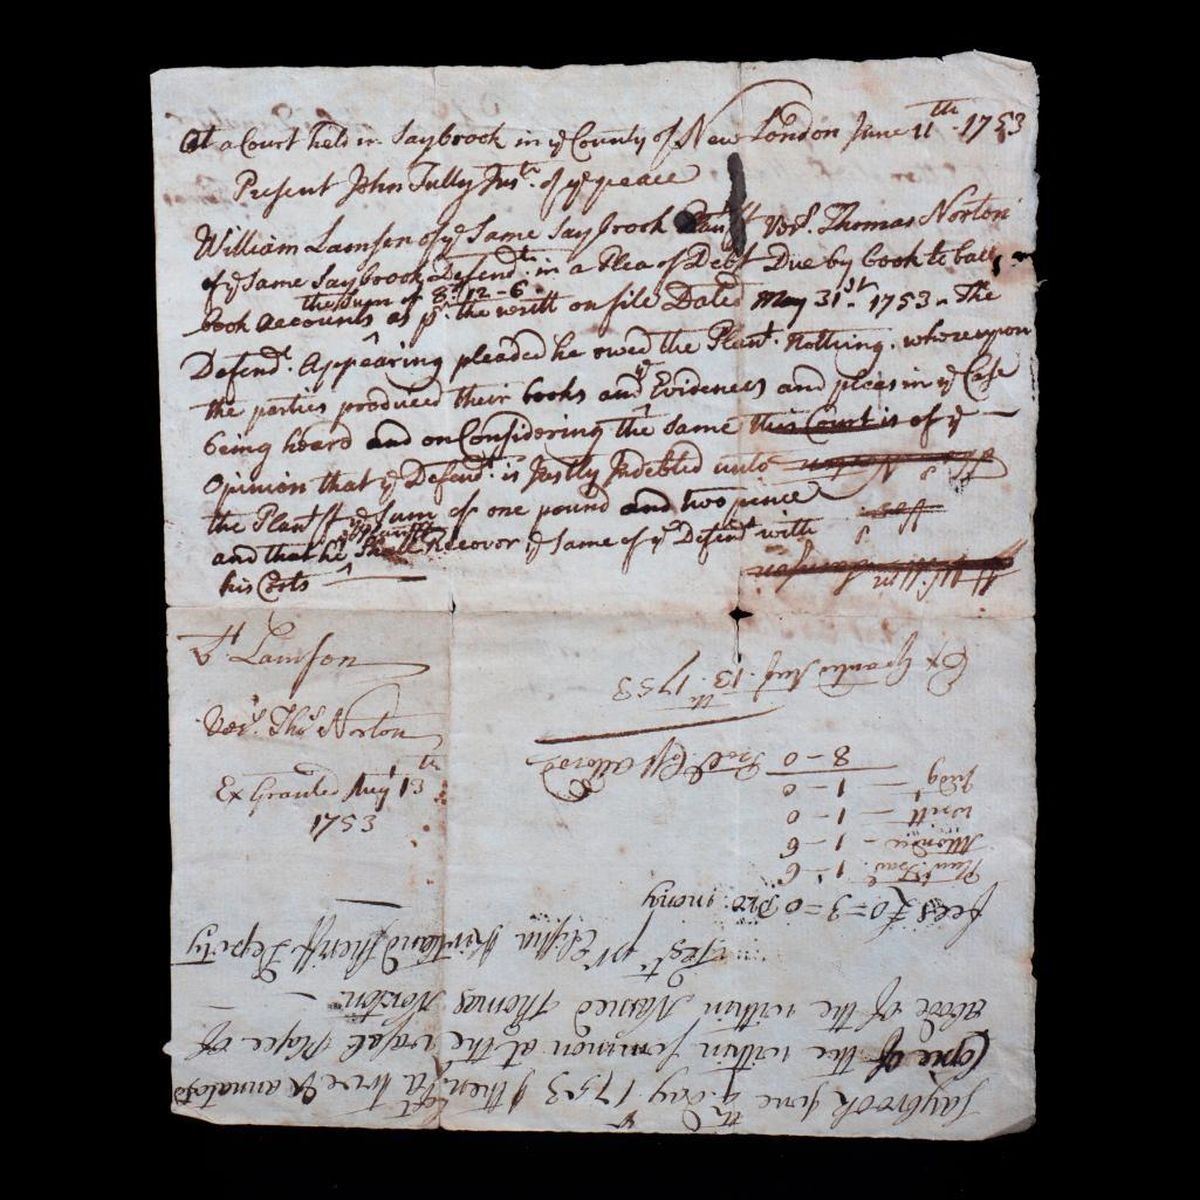 At a Court held in Saybrook in ye County of New London June 11th 1753
Present John Tully Just. of ye peace
William Lamson of ye Same Saybrook Plantff Vers. Thomas Norton
of ye Same Saybrook Defendt. in a Plea of Debt Due by book to ball
the Sum of 8£-12-6
book Accounts as pr. the writt on file Dated May 31st. 1753 - The
Defendt. Appearing pleaded he owed the Plant. Nothing. whereupon
the parties produced their books and ye Evidences and pleas in ye Case
being heard and on Considering the same this Court is of ye
Opinion that ye Defendt. is Justly Indebted unto
the Plantff ye Sum of one pound and two pence
ye Plantff
and that he Shall Recover ye same of ye Defendt with
his Costs
Lamson
Vers. Thos Norton
Ex Granted Augt 13th
1753
Saybrook June 4th Day 1753 then Left a true & annatested
Cone of the within Summon at the usal Place of
abode of the within Named Thomas Norton
Test pr Elisha Kirtland Sheriff Deputy
fees £0=3=0 Pro: mony
Plant. Trav. 1-6
Attondce - 1-6
Writt - 1-0
Judg - 1-0
8-0 Cost Allowd
Ex Granted Augt. 13th 1753
Willm Lamson
Vers
Thos Norton